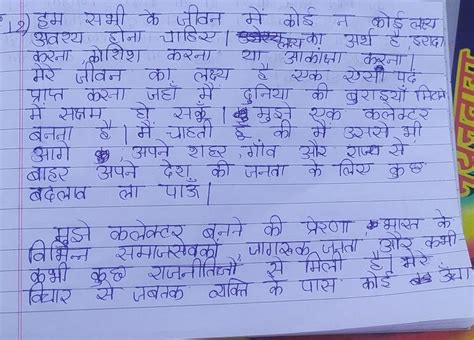 12) हम सभी के जीवन में कोई न कोई लक्ष्य
अवश्य होना चाहिए। लक्ष्य का अर्थ है, इरादा
करना, कोशिश करना या आकांक्षा करना।
मेरे जीवन का लक्ष्य है एक ऐसी पद
प्राप्त करना जहाँ मैं दुनिया की बुराइयाँ मिटाने
में सक्षम हो सकूँ। मुझे एक कलेक्टर
बनना है। मैं चाहती हूँ की मैं उससे भी
आगे अपने शहर, गाँव और राज्य से
बाहर अपने देश की जनता के लिए कुछ
बदलाव ला पाऊँ।
मुझे कलेक्टर बनने की प्रेरणा भारत के
विभिन्न समाजसेवकों, जागरूक जनता और कभी
कभी कुछ राजनीतिज्ञों से मिली है। मेरे
विचार से जबतक व्यक्ति के पास कोई ऊँचा